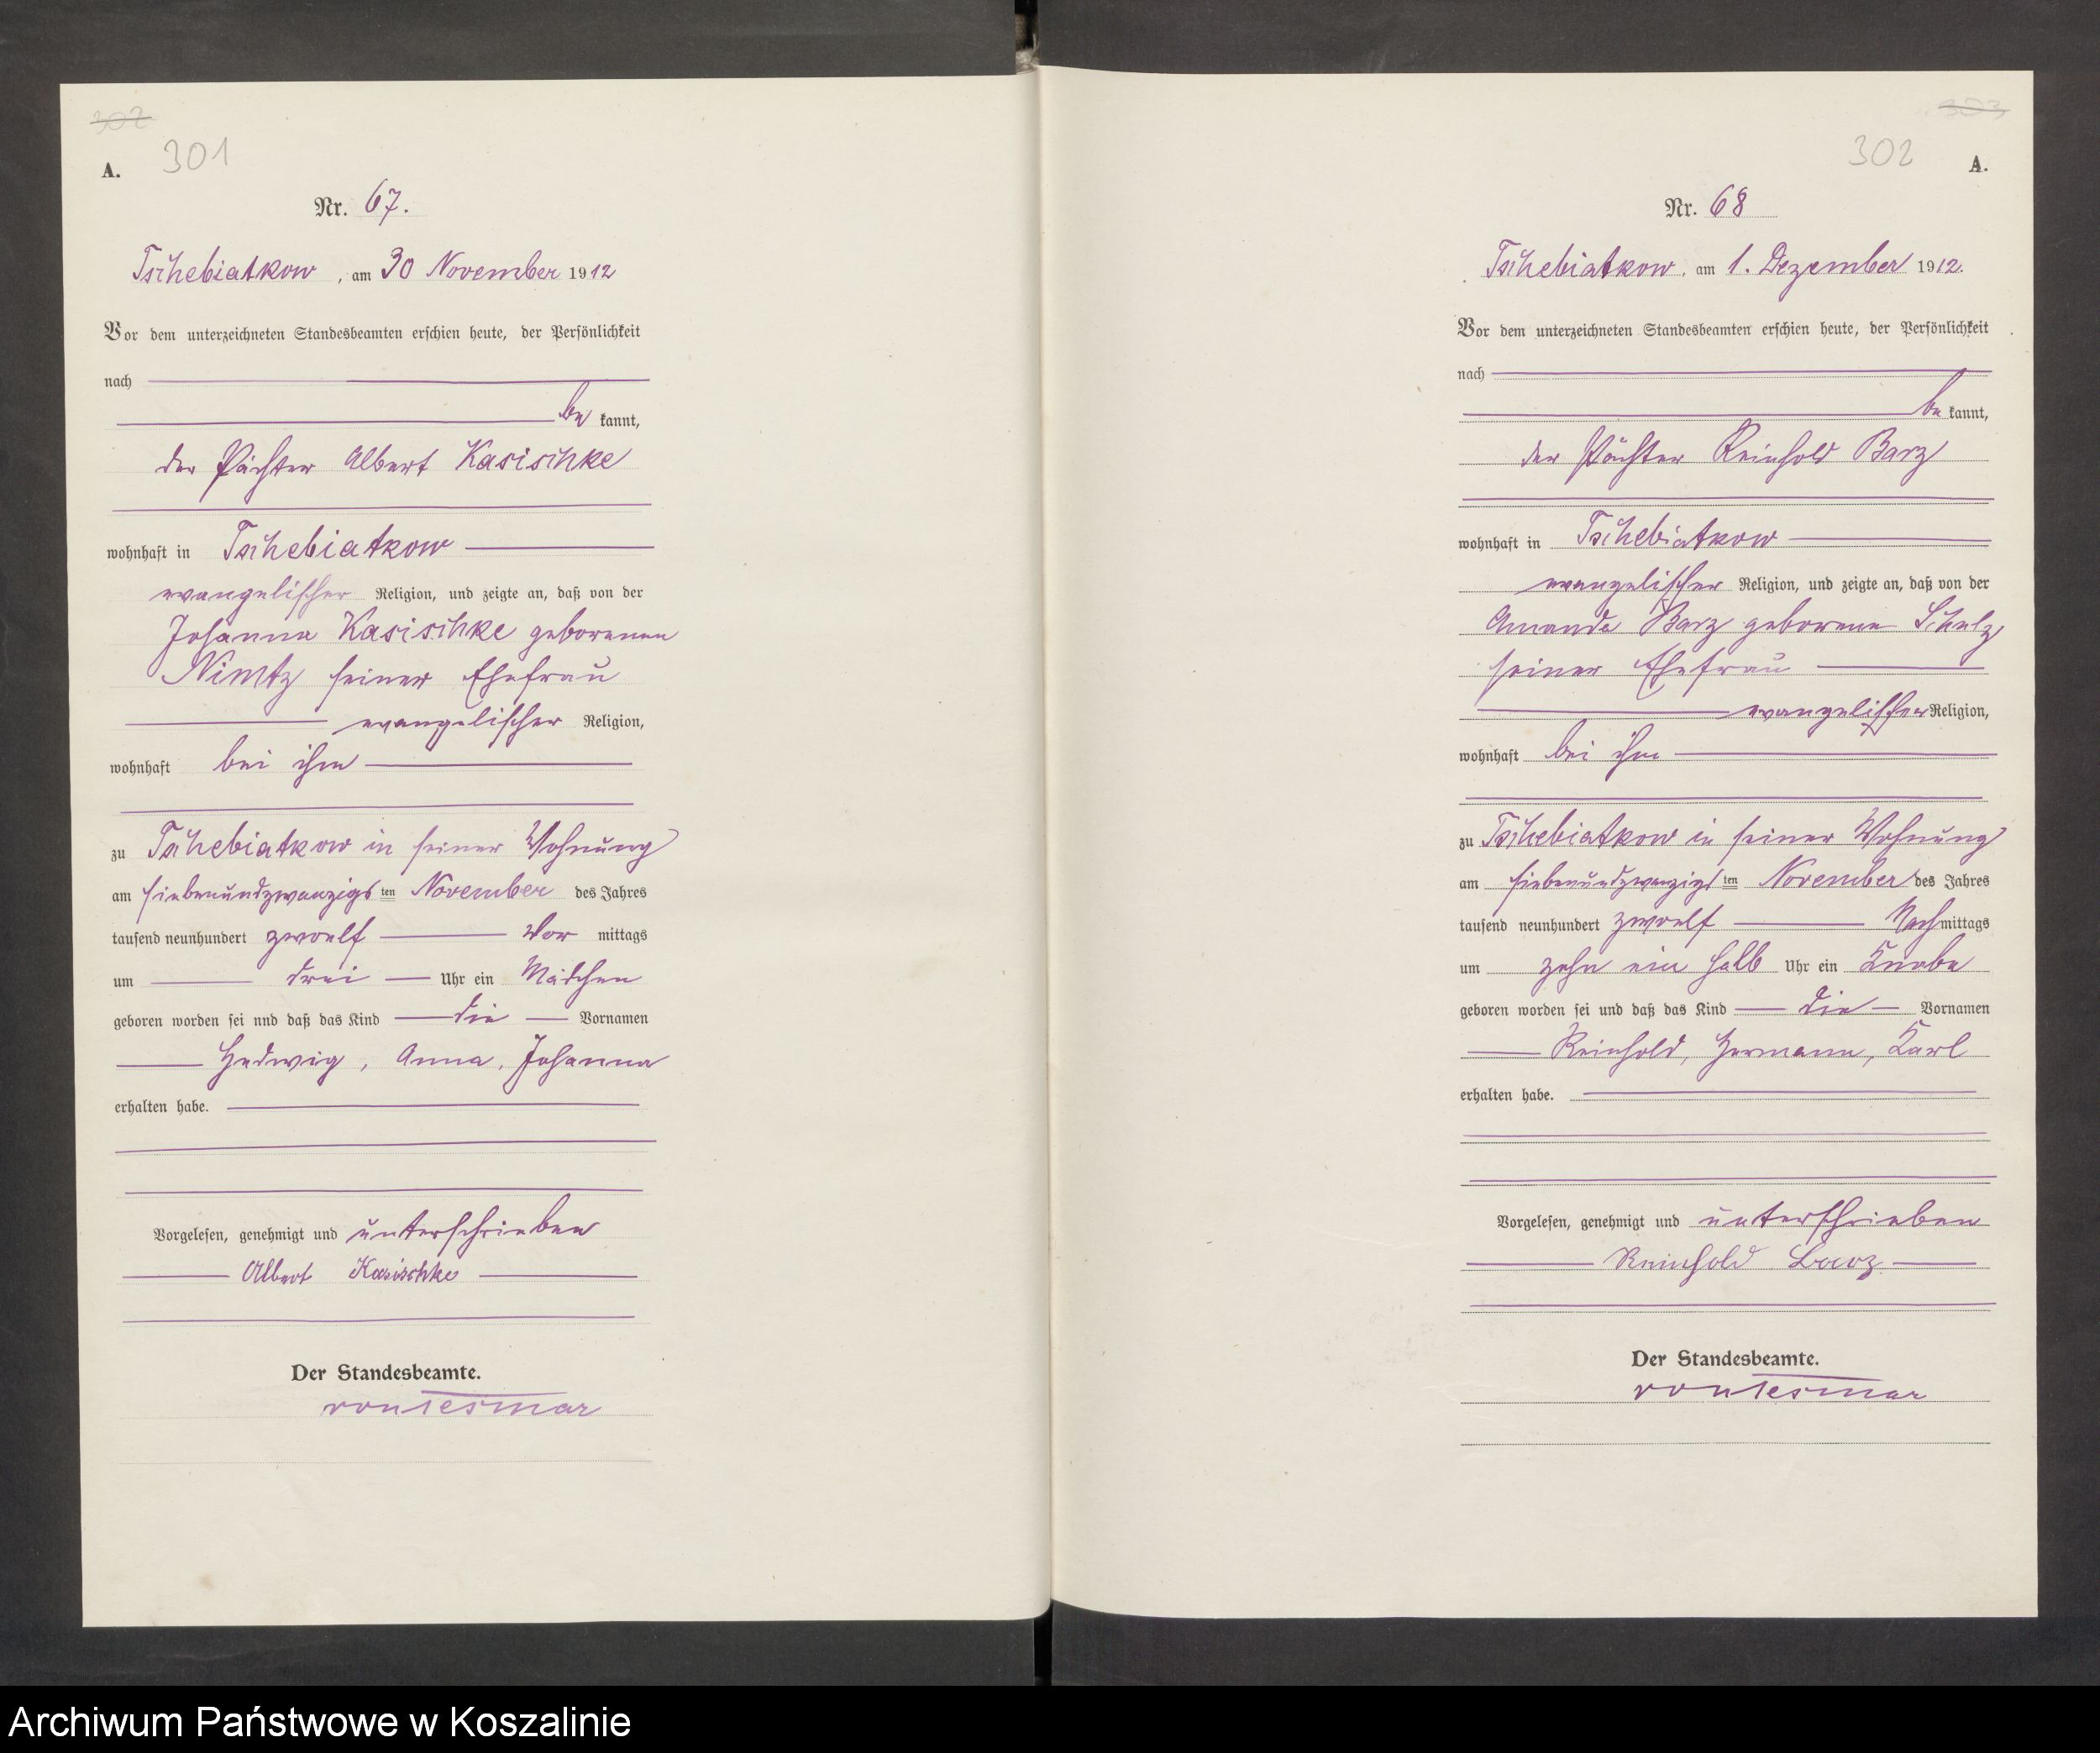 302
A. 301
Nr. 67.
Tschebiatkow, am 30 November 1912
Vor dem unterzeichneten Standesbeamten erschien heute, der Persönlichkeit
nach
be kannt,
der Pächter Albert Kasischke
wohnhaft in Tschebiatkow
evangelischer Religion, und zeigte an, daß von der
Johanna Kasischke geborenen
Nimtz seiner Ehefrau
evangelischer Religion,
wohnhaft bei ihm
zu Tschebiatkow in seiner Wohnung
am siebenundzwanzigs ten November des Jahres
tausend neunhundert zwoelf Vor mittags
um drei Uhr ein Mädchen
geboren worden sei nnd daß das Kind die Vornamen
Hedwig, Anna, Johanna
erhalten habe.
Vorgelesen, genehmigt und unterschrieben
Albert Kasischke
Der Standesbeamte.
von Tesmar
303
302 A.
Nr. 68
Tschebiatkow, am 1. Dezember 1912.
Vor dem unterzeichneten Standesbeamten erschien heute, der Persönlichkeit
nach
be kannt,
der Pächter Reinhold Barz
wohnhaft in Tschebiatkow
evangelischer Religion, und zeigte an, daß von der
Amanda Barz geborene Schulz
seiner Ehefrau
evangelischer Religion,
wohnhaft bei ihm
zu Tschebiatkow in seiner Wohnung
am siebenundzwanzigs ten November des Jahres
tausend neunhundert zwoelf Nach mittags
um zehn ein halb Uhr ein Knabe
geboren worden sei und daß das Kind die Vornamen
Reinhold, Hermann, Karl
erhalten habe.
Vorgelesen, genehmigt und unterschrieben
Reinhold Barz
Der Standesbeamte.
von Tesmar
Archiwum Państwowe w Koszalinie